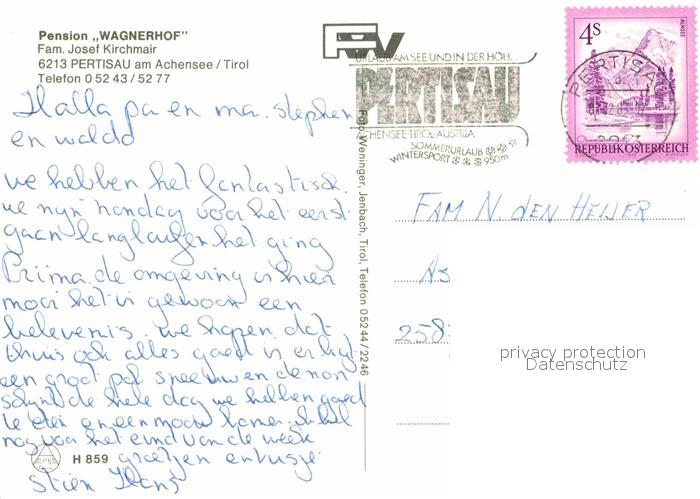 Pension „WAGNERHOF"
Fam. Josef Kirchmair
6213 PERTISAU am Achensee / Tirol
Telefon 0 52 43 / 52 77
Halla pa en ma. stephen
en waldo
we hebben het fantastisch.
we zijn handag voor het eerst
gaan langlaufen het ging
Prima. de omgeving is hier
mooi het is gewoon een
belevenis. we hopen dat
thuis ook alles goed is er ligt
een groot pak sneeuw en de zon
schijnt de hele dag we hebben goed
te eten en een mooie kamer.
nog voor het eind van de week
groetjes en kusjes
Stien Hans
H 859
Foto: Weninger, Jenbach, Tirol, Telefon 05244/2246
URLAUB AM SEE UND IN DER HÖH...
PERTISAU
ACHENSEE-TIROL-AUSTRIA
SOMMERURLAUB
WINTERSPORT 950m
4 S
ALMSEE
PERTISAU
REPUBLIK ÖSTERREICH
FAM N. DEN HEIJER
As
258
privacy protection
Datenschutz